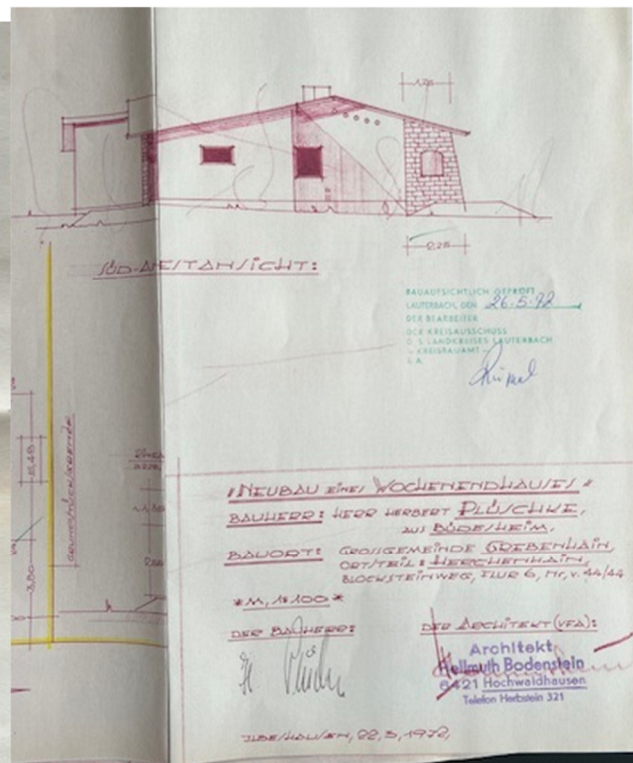 1,25
SÜD-WESTANSICHT:
2,25
BAUAUFSICHTLICH GEPRÜFT
LAUTERBACH, DEN 26.5.72
DER BEARBEITER
DER KREISAUSSCHUSS
D. S LANDKREISES LAUTERBACH
- KREISBAUAMT -
I. A.
GRUNDSTÜCKSGRENZE
3,80
"NEUBAU EINES WOCHENENDHAUSES"
BAUHERR: HERR HERBERT PLÜSCHKE,
AUS BÜDESHEIM.
BAUORT: GROSSGEMEINDE GREBENHAIN,
ORT/TEIL: HERCHENHAIN,
BLOCKSTEINWEG, FLUR 6, Nr, v. 44/44
*M, 1:100*
DER BAUHERR:
DER ARCHITEKT (VFA):
Architekt
Hellmuth Bodenstein
6421 Hochwaldhausen
Telefon Herbstein 321
ILBESHAUSEN, 22,3,1972,